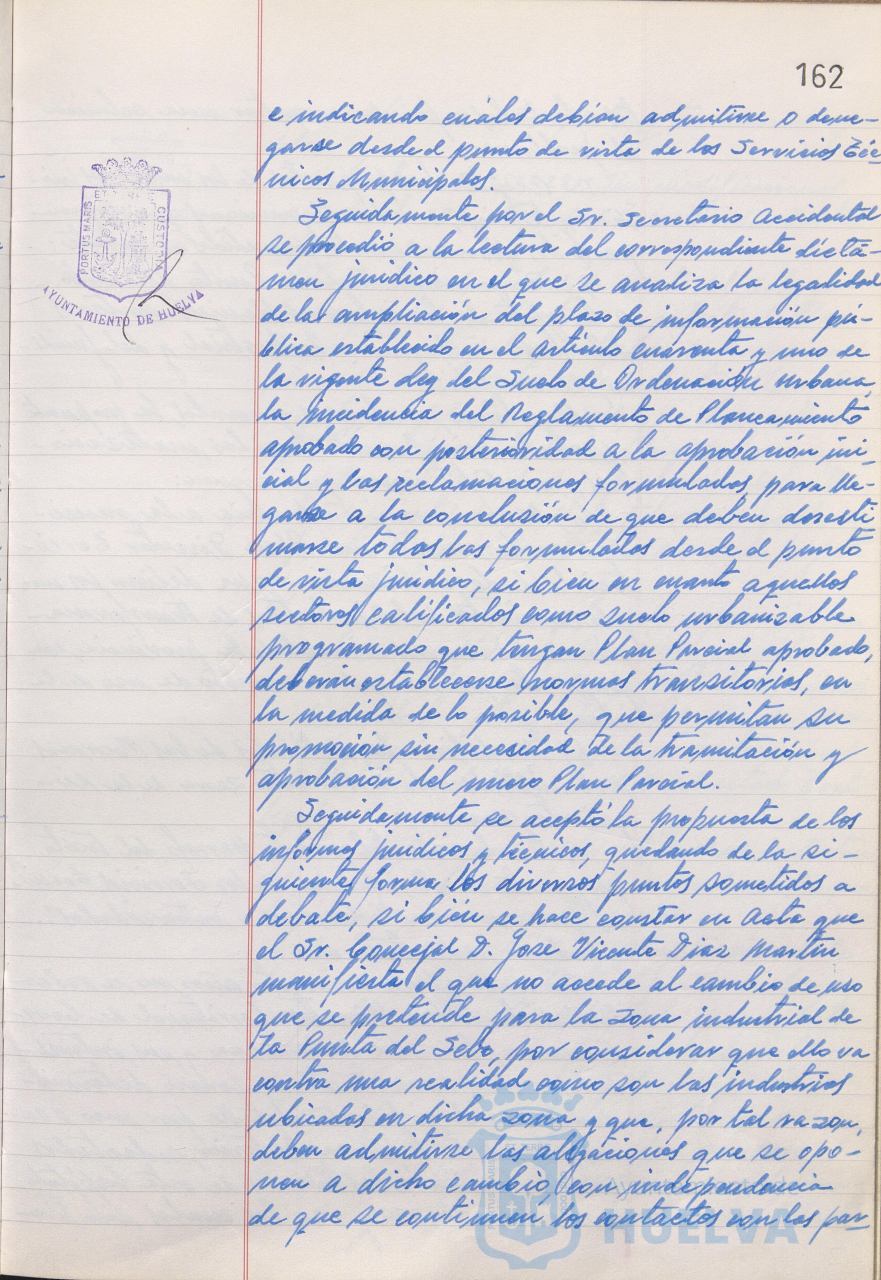 162
e indicando cuáles debían admitirse o dene-
garse desde el punto de vista de los Servicios Téc
nicos Municipales.
Seguidamente por el Sr. Secretario Accidental
se procedió a la lectura del correspondiente dictá-
men jurídico en el que se analiza la legalidad
de la ampliación del plazo de información pú-
blica establecido en el artículo cuarenta y uno de
la vigente Ley del Suelo de Ordenación urbana,
la incidencia del Reglamento de Planeamiento
aprobado con posterioridad a la aprobación ini-
cial y las reclamaciones formuladas, para lle-
garse a la conclusión de que deben desesti
marse todas las formuladas desde el punto
de vista jurídico, si bien en cuanto aquellos
sectores calificados como suelo urbanizable
programado que tengan Plan Parcial aprobado,
deberán establecerse normas transitorias, en
la medida de lo posible, que permitan su
promoción sin necesidad de la tramitación y
aprobación del nuevo Plan Parcial.
Seguidamente se aceptó la propuesta de los
informes jurídicos y técnicos, quedando de la si-
guiente forma los diversos puntos sometidos a
debate, si bién se hace constar en Acta que
el Sr. Concejal D. Jose Vicente Diaz Martin
manifiesta el que no accede al cambio de uso
que se pretende para la zona industrial de
la Punta del Sebo, por considerar que ello va
contra una realidad como son las industrias
ubicadas en dicha zona y que, por tal razon,
deben admitirse las alegaciones que se opo-
nen a dicho cambio, con independencia
de que se continuen los contactos con las par
PORTUS MARIS ET CUSTODIA
AYUNTAMIENTO DE HUELVA
Ayuntamiento de
HUELVA